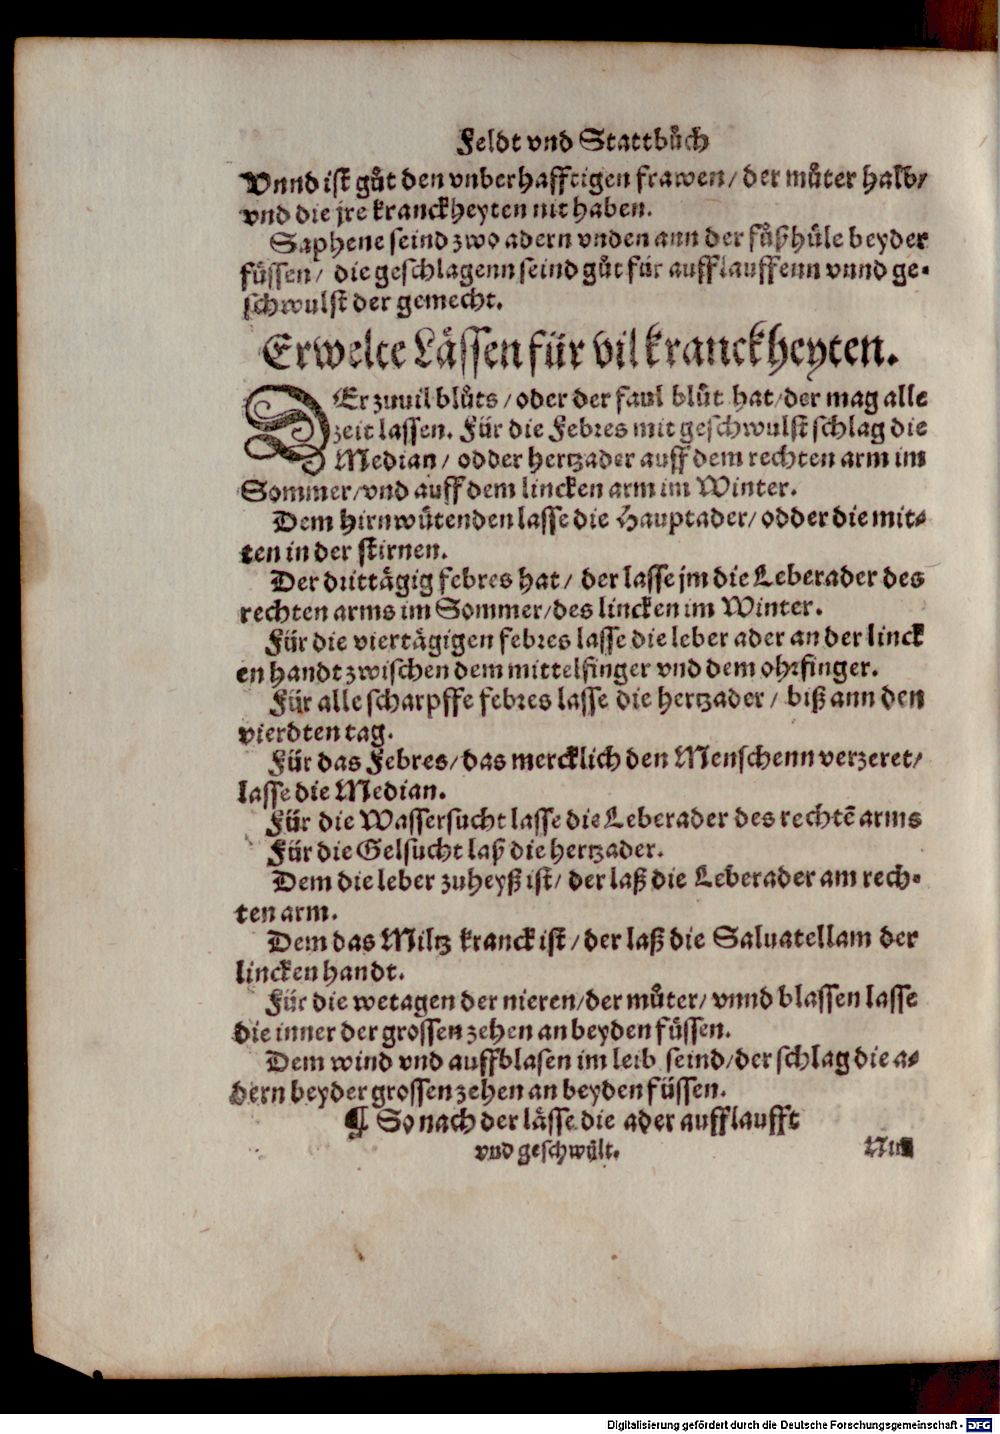 Feldt vnd Stattbůch
Vnnd ist gůt den vnberhafftigen frawen/ der můter halb/
vnd die jre kranckheyten nit haben.
Saphene seind zwo adern vnden ann der fůßhüle beyder
füssen/ die geschlagenn seind gůt für aufflauffenn vnnd ge-
schwulst der gemecht.
Erwelte Lässen für vil kranckheyten.
DEr zuuil blůts/ oder der faul blůt hat/ der mag alle
zeit lassen. Für die Febres mit geschwulst schlag die
Median/ odder hertzader auff dem rechten arm im
Sommer/ vnd auff dem lincken arm im Winter.
Dem hirnwütenden lasse die Hauptader/ odder die mit-
ten in der stirnen.
Der drittägig febres hat/ der lasse jm die Leberader des
rechten arms im Sommer/ des lincken im Winter.
Für die viertägigen febres lasse die leber ader an der linck
en handt zwischen dem mittelfinger vnd dem ohrfinger.
Für alle scharpffe febres lasse die hertzader/ biß ann den
vierdten tag.
Für das Febres/ das mercklich den Menschenn verzeret/
lasse die Median.
Für die Wassersucht lasse die Leberader des rechtē arms
Für die Gelsucht laß die hertzader.
Dem die leber zuheyß ist/ der laß die Leberader am rech-
ten arm.
Dem das Miltz kranck ist/ der laß die Saluatellam der
lincken handt.
Für die wetagen der nieren/ der můter/ vnnd blassen lasse
die inner der grossen zehen an beyden füssen.
Dem wind vnd auffblasen im leib seind/ der schlag die a-
dern beyder grossen zehen an beyden füssen.
¶ So nach der lässe die ader auffla​ufft
vnd geschwilt.
Nim
Digitalisierung gefördert durch die Deutsche Forschungsgemeinschaft - DFG